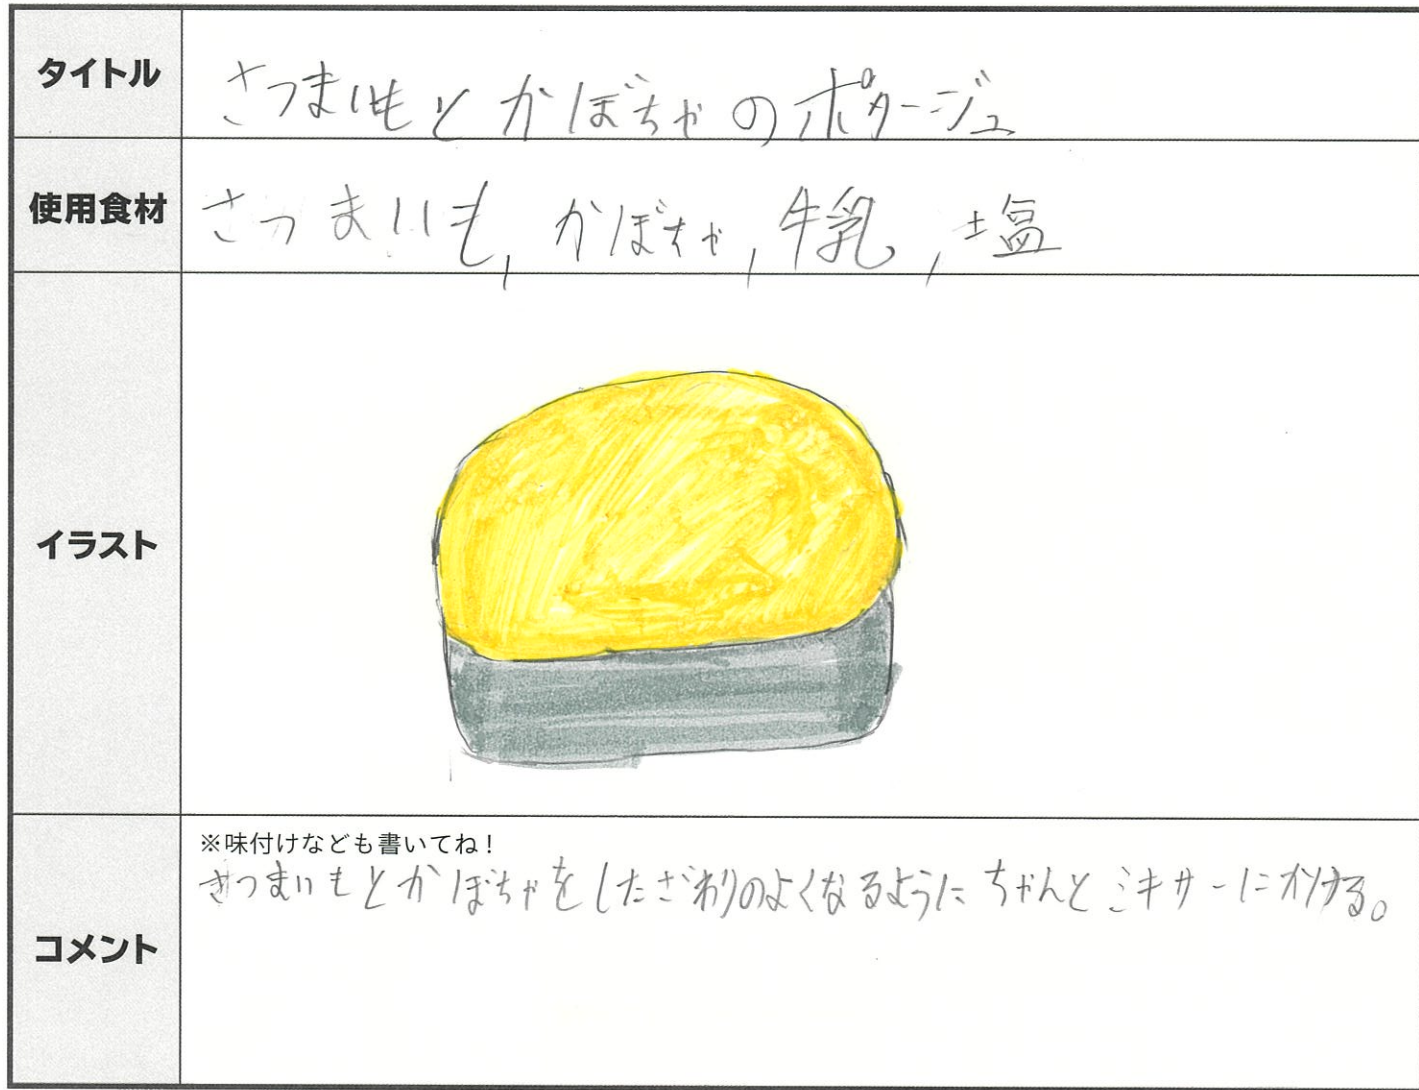 タイトル
さつまいもとかぼちゃのポタージュ
使用食材
さつまいも,かぼちゃ,牛乳,塩
イラスト
コメント
※味付けなども書いてね!
さつまいもとかぼちゃをしたざわりのよくなるようにちゃんとミキサーにかける。